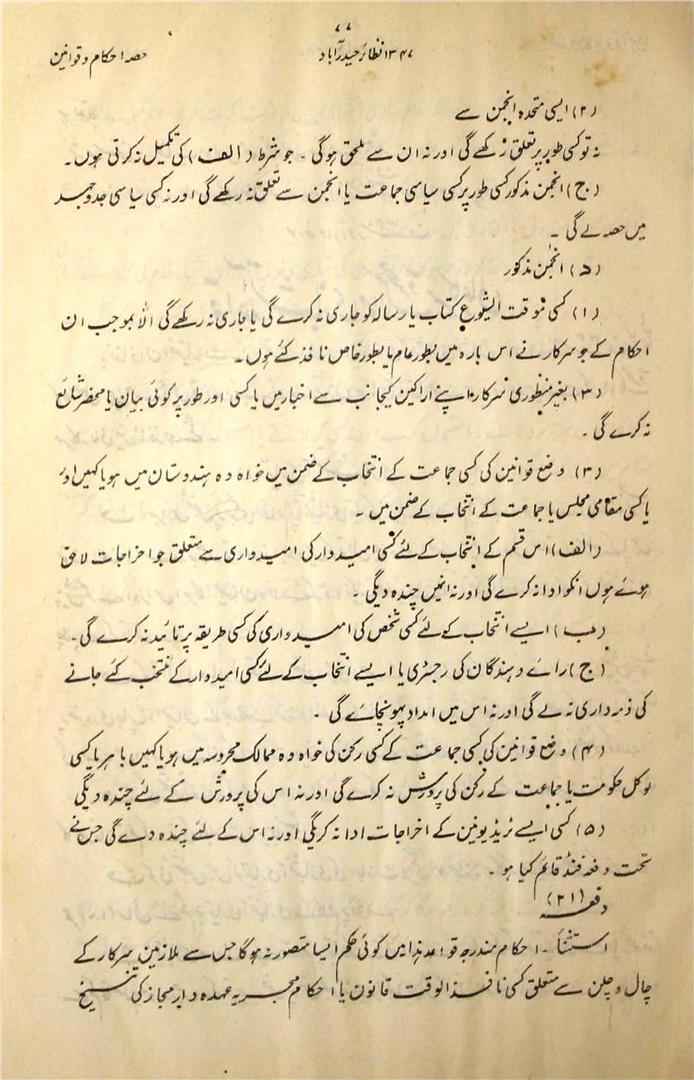 ۷۷
۱۳۴۷ نظائر حیدرآباد
حصہ احکام و قوانین
(۲) ایسی متحدہ انجمن سے
نہ تو کسی طور پر تعلق رکھے گی اور نہ ان سے ملحق ہوگی - جو شرط (الف) کی تکمیل نہ کرتی ہوں۔
(ج) انجمن مذکور کسی طور پر کسی سیاسی جماعت یا انجمن سے تعلق نہ رکھے گی اور نہ کسی سیاسی جدوجہد
میں حصہ لے گی ۔
(۵) انجمن مذکور
(۱) کسی موقت الشیوع کتاب یا رسالہ کو جاری نہ کرے گی یا جاری نہ رکھے گی الّا بموجب ان
احکام کے جو سرکار نے اس بارہ میں بطور عام یا بطور خاص نافذ کئے ہوں۔
(۲) بغیر منظوری سرکار اپنے اراکین کیجانب سے اخبار میں یا کسی اور طور پر کوئی بیان یا محضر شائع
نہ کرے گی ۔
(۳) وضع قوانین کی کسی جماعت کے انتخاب کے ضمن میں خواہ وہ ہندوستان میں ہو یا کہیں اور
یا کسی مقامی مجلس یا جماعت کے انتخاب کے ضمن میں ۔
(الف) اس قسم کے انتخاب کے لئے کسی امیدوار کی امیدواری سے متعلق جو اخراجات لاحق
ہوئے ہوں انکو ادا نہ کرے گی اور نہ انہیں چندہ دیگی ۔
(ب) ایسے انتخاب کے لئے کسی شخص کی امیدواری کی کسی طریقہ پر تائید نہ کرے گی ۔
(ج) رائے دہندگان کی رجسٹری یا ایسے انتخاب کے لئے کسی امیدوار کے منتخب کئے جانے
کی ذمہ داری نہ لے گی اور نہ اس میں امداد پہونچائے گی ۔
(۴) وضع قوانین کی کسی جماعت کے کسی رکن کی خواہ وہ ممالک محروسہ میں ہو یا کہیں باہر یا کسی
لوکل حکومت یا جماعت کے رکن کی پرورش نہ کرے گی اور نہ اس کی پرورش کے لئے چندہ دیگی
(۵) کسی ایسے ٹریڈ یونین کے اخراجات ادا نہ کریگی اور نہ اس کے لئے چندہ دے گی جس نے
تحت دفعہ فنڈ قائم کیا ہو ۔
دفعہ (۲۱)
استثنأ ۔ احکام مندرجہ قواعد ہذا میں کوئی حکم ایسا متصور نہ ہوگا جس سے ملازمین سرکار کے
چال و چلن سے متعلق کسی نافذ الوقت قانون یا احکام مجریہ عہدہ دار مجاز کی تنسیخ